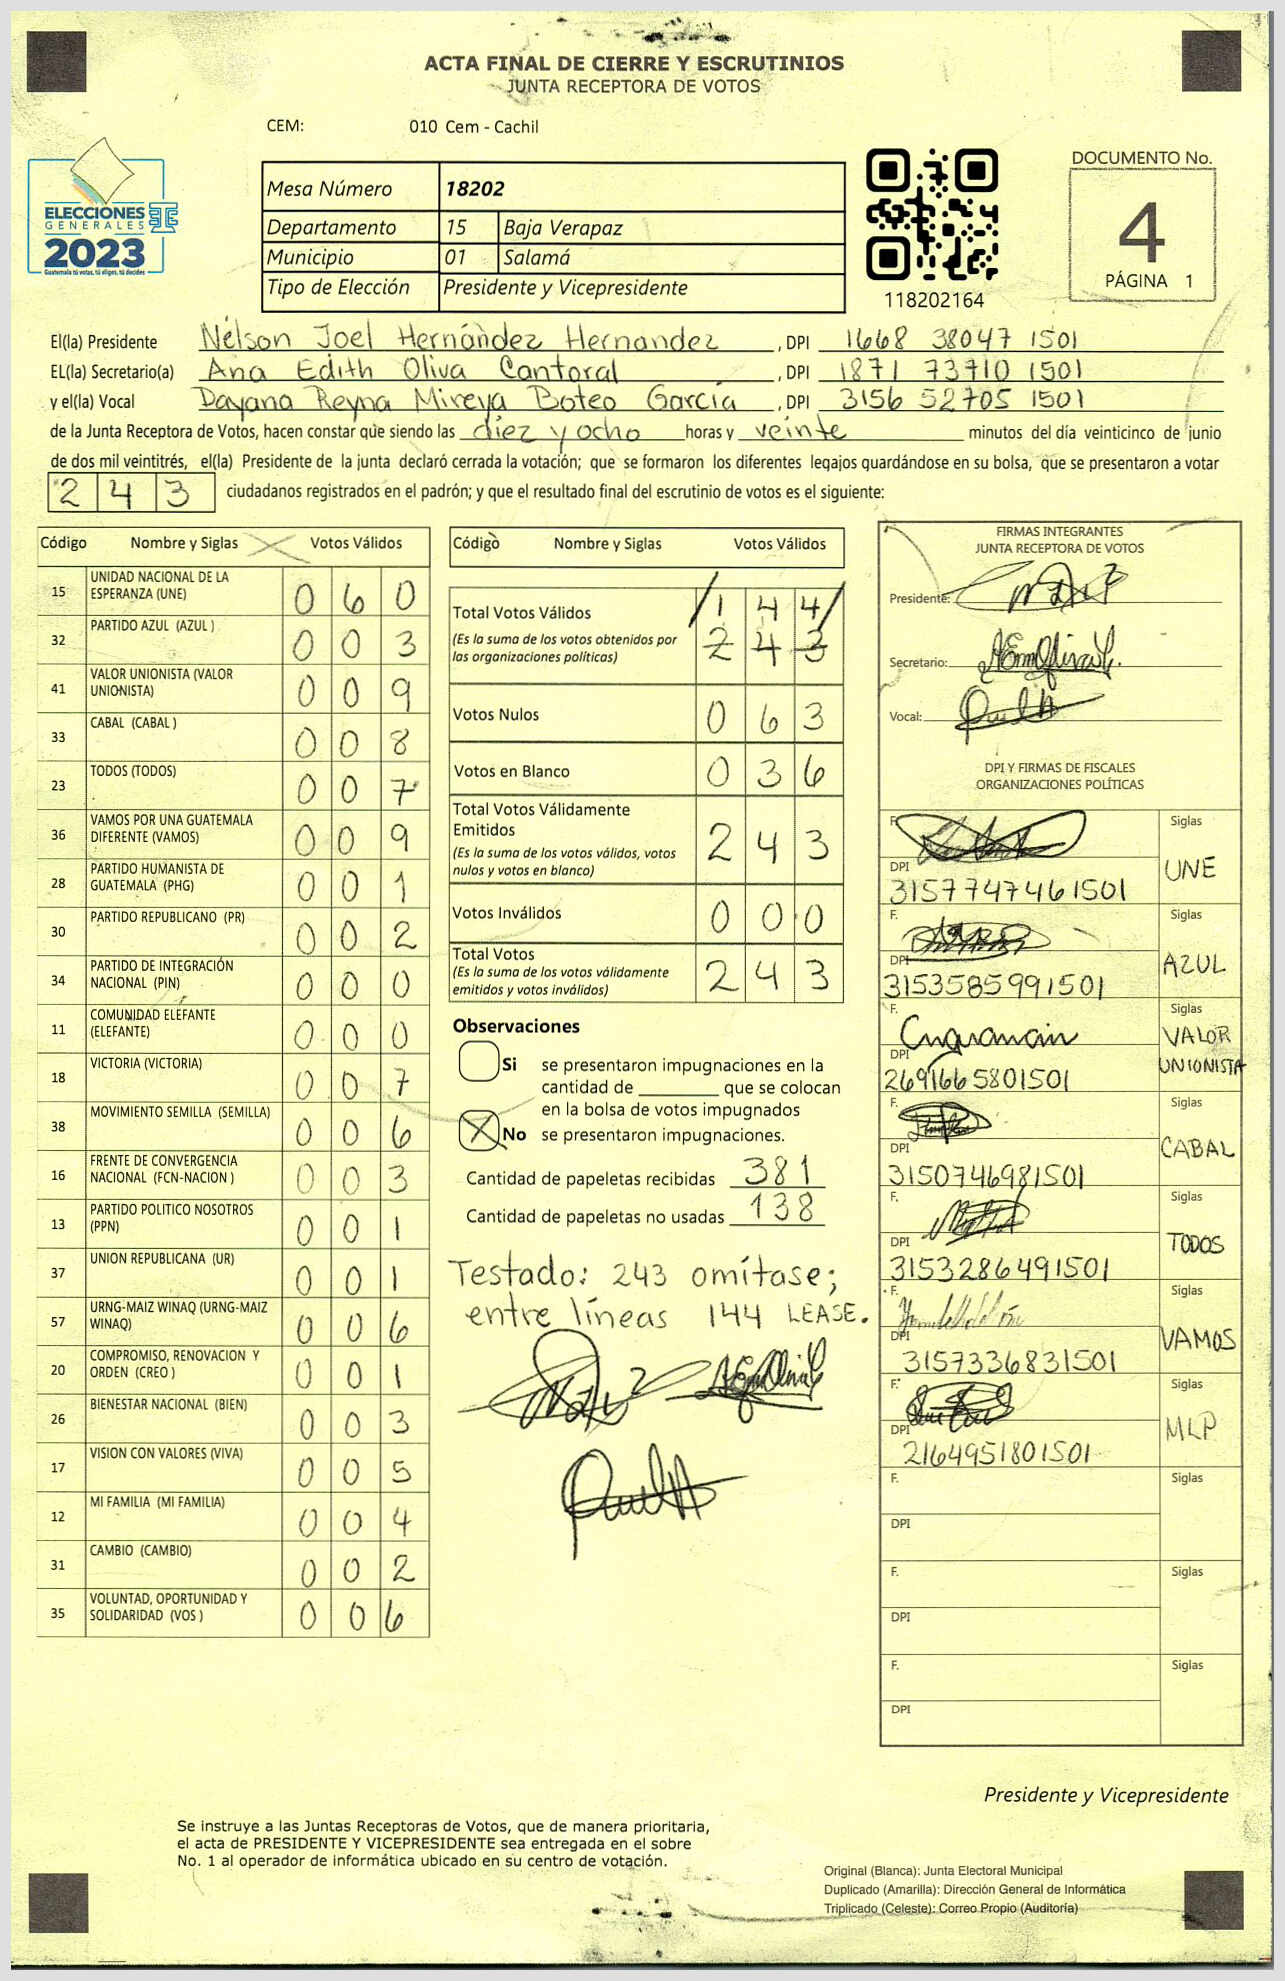 ACTA FINAL DE CIERRE Y ESCRUTINIOS
JUNTA RECEPTORA DE VOTOS
CEM: 010 Cem - Cachil
ELECCIONES
GENERALES
2023
Guatemala tú votas, tú eliges, tú decides
Mesa Número 18202
Departamento 15 Baja Verapaz
Municipio 01 Salamá
Tipo de Elección Presidente y Vicepresidente
118202164
DOCUMENTO No.
4
PÁGINA 1
El(la) Presidente Nélson Joel Hernández Hernandez , DPI 1668 38047 1501
EL(la) Secretario(a) Ana Edith Oliva Cantoral , DPI 1871 73710 1501
y el(la) Vocal Dayana Reyna Mireya Boteo García , DPI 3156 52705 1501
de la Junta Receptora de Votos, hacen constar que siendo las diez y ocho horas y veinte minutos del día veinticinco de junio
de dos mil veintitrés, el(la) Presidente de la junta declaró cerrada la votación; que se formaron los diferentes legajos guardándose en su bolsa, que se presentaron a votar
243 ciudadanos registrados en el padrón; y que el resultado final del escrutinio de votos es el siguiente:
Código Nombre y Siglas Votos Válidos
15 UNIDAD NACIONAL DE LA ESPERANZA (UNE) 0 6 0
32 PARTIDO AZUL (AZUL ) 0 0 3
41 VALOR UNIONISTA (VALOR UNIONISTA) 0 0 9
33 CABAL (CABAL ) 0 0 8
23 TODOS (TODOS) 0 0 7
36 VAMOS POR UNA GUATEMALA DIFERENTE (VAMOS) 0 0 9
28 PARTIDO HUMANISTA DE GUATEMALA (PHG) 0 0 1
30 PARTIDO REPUBLICANO (PR) 0 0 2
34 PARTIDO DE INTEGRACIÓN NACIONAL (PIN) 0 0 0
11 COMUNIDAD ELEFANTE (ELEFANTE) 0 0 0
18 VICTORIA (VICTORIA) 0 0 7
38 MOVIMIENTO SEMILLA (SEMILLA) 0 0 6
16 FRENTE DE CONVERGENCIA NACIONAL (FCN-NACION ) 0 0 3
13 PARTIDO POLITICO NOSOTROS (PPN) 0 0 1
37 UNION REPUBLICANA (UR) 0 0 1
57 URNG-MAIZ WINAQ (URNG-MAIZ WINAQ) 0 0 6
20 COMPROMISO, RENOVACION Y ORDEN (CREO ) 0 0 1
26 BIENESTAR NACIONAL (BIEN) 0 0 3
17 VISION CON VALORES (VIVA) 0 0 5
12 MI FAMILIA (MI FAMILIA) 0 0 4
31 CAMBIO (CAMBIO) 0 0 2
35 VOLUNTAD, OPORTUNIDAD Y SOLIDARIDAD (VOS ) 0 0 6
Código Nombre y Siglas Votos Válidos
Total Votos Válidos /1 4 4/
(Es la suma de los votos obtenidos por las organizaciones políticas) 2 4 3
Votos Nulos 0 6 3
Votos en Blanco 0 3 6
Total Votos Válidamente Emitidos
(Es la suma de los votos válidos, votos nulos y votos en blanco) 2 4 3
Votos Inválidos 0 0 0
Total Votos
(Es la suma de los votos válidamente emitidos y votos inválidos) 2 4 3
Observaciones
Si se presentaron impugnaciones en la
cantidad de ________ que se colocan
en la bolsa de votos impugnados
X No se presentaron impugnaciones.
Cantidad de papeletas recibidas 381
Cantidad de papeletas no usadas 138
Testado: 243 omítase;
entre líneas 144 LEASE.
FIRMAS INTEGRANTES
JUNTA RECEPTORA DE VOTOS
Presidente:
Secretario:
Vocal:
DPI Y FIRMAS DE FISCALES
ORGANIZACIONES POLÍTICAS
F. Siglas
DPI 3157747461501 UNE
F. Siglas
DPI 3153585991501 AZUL
F. Siglas
DPI 2691665801501 VALOR UNIONISTA
F. Siglas
DPI 3150746981501 CABAL
F. Siglas
DPI 3153286491501 TODOS
F. Siglas
DPI 3157336831501 VAMOS
F. Siglas
DPI 2164951801501 MLP
F. Siglas
DPI
F. Siglas
DPI
F. Siglas
DPI
Presidente y Vicepresidente
Se instruye a las Juntas Receptoras de Votos, que de manera prioritaria,
el acta de PRESIDENTE Y VICEPRESIDENTE sea entregada en el sobre
No. 1 al operador de informática ubicado en su centro de votación.
Original (Blanca): Junta Electoral Municipal
Duplicado (Amarilla): Dirección General de Informática
Triplicado (Celeste): Correo Propio (Auditoría)